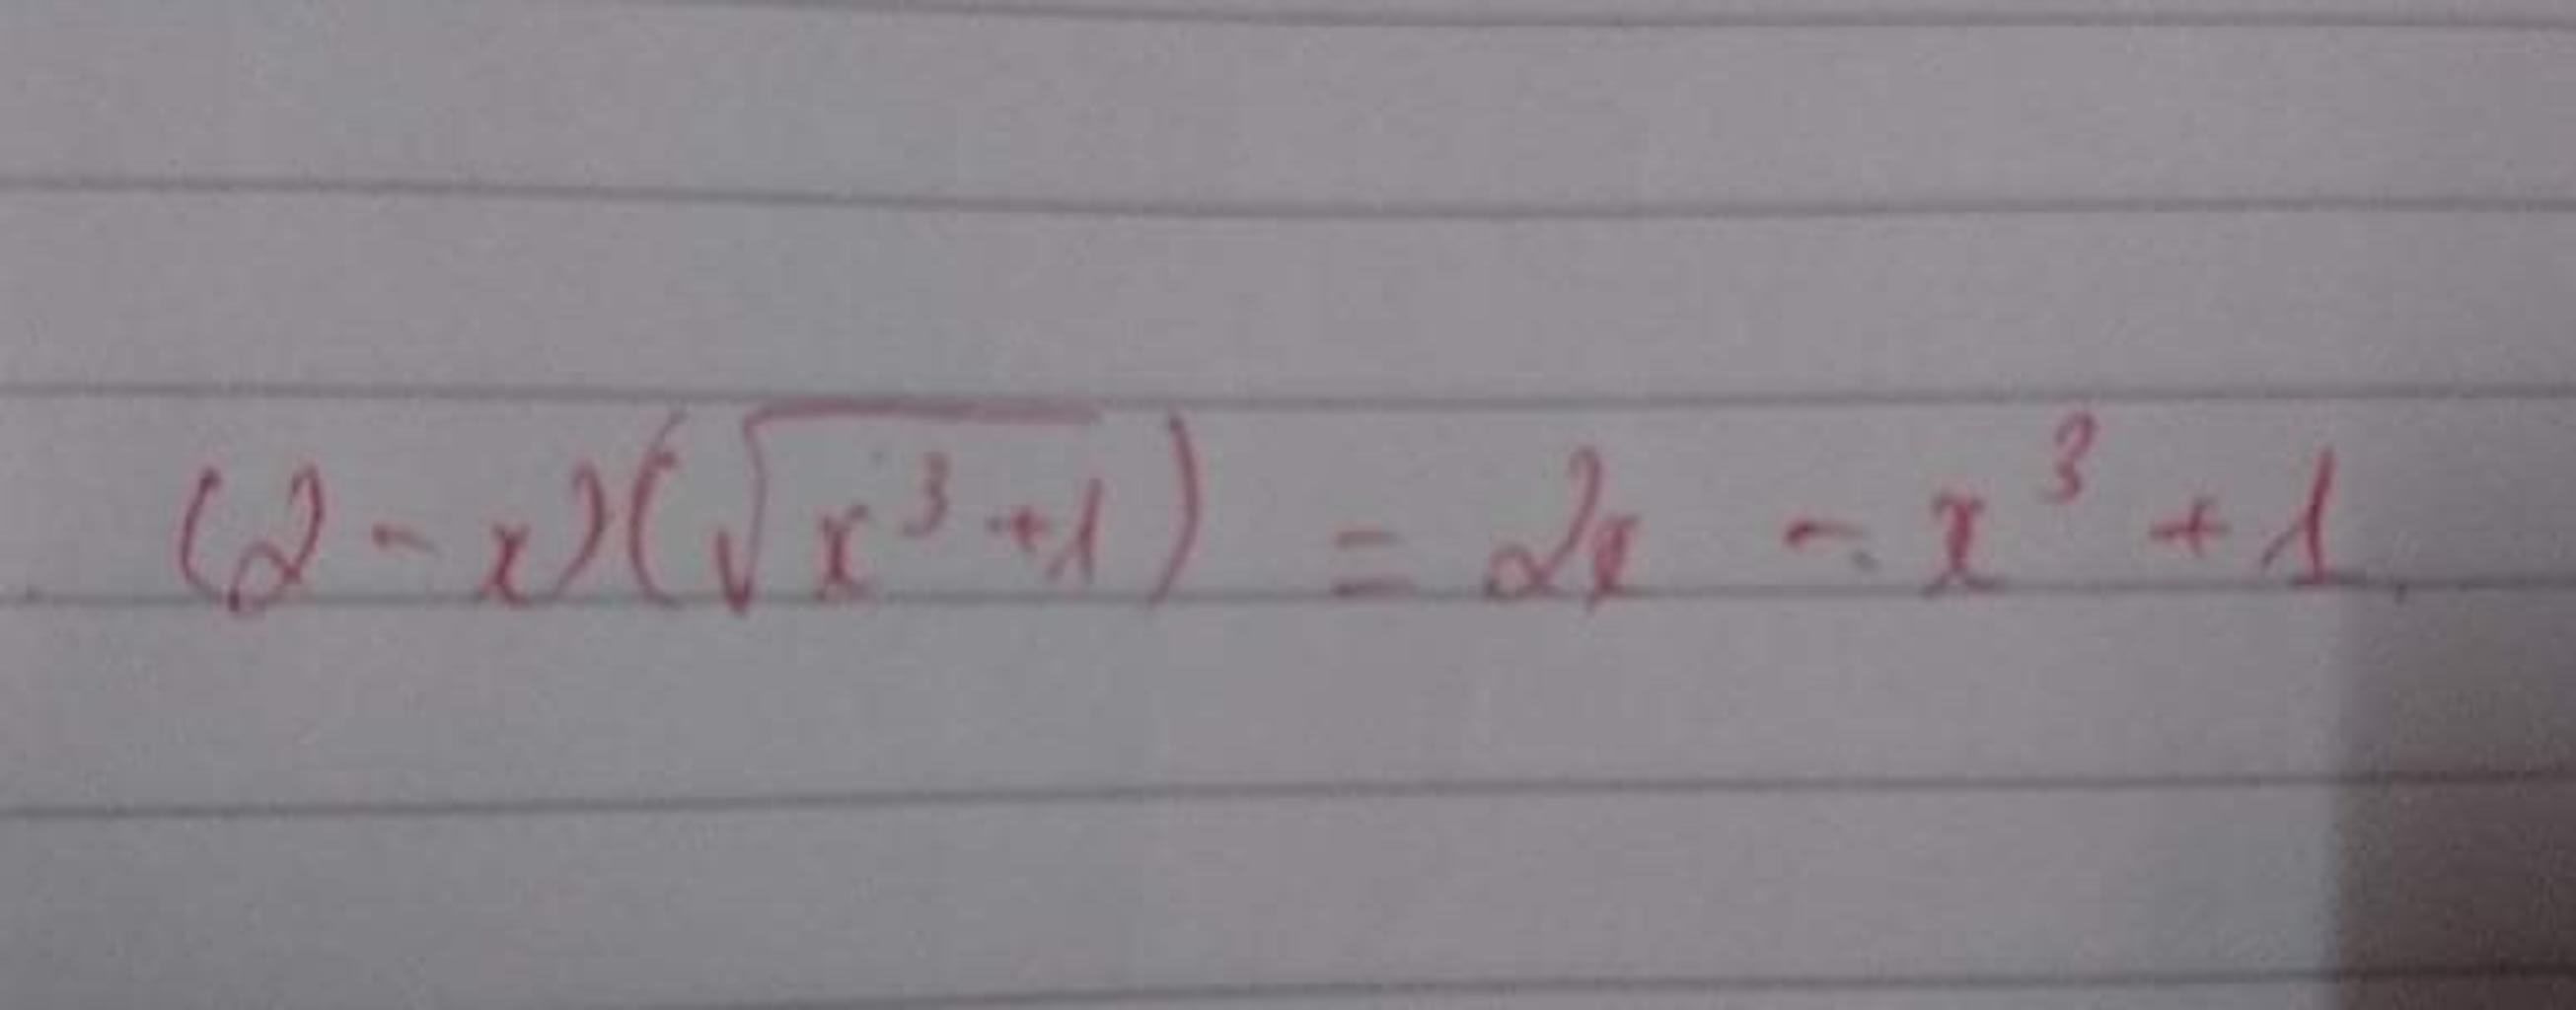 (2 - x)(√(x³ + 1)) = 2x - x³ + 1